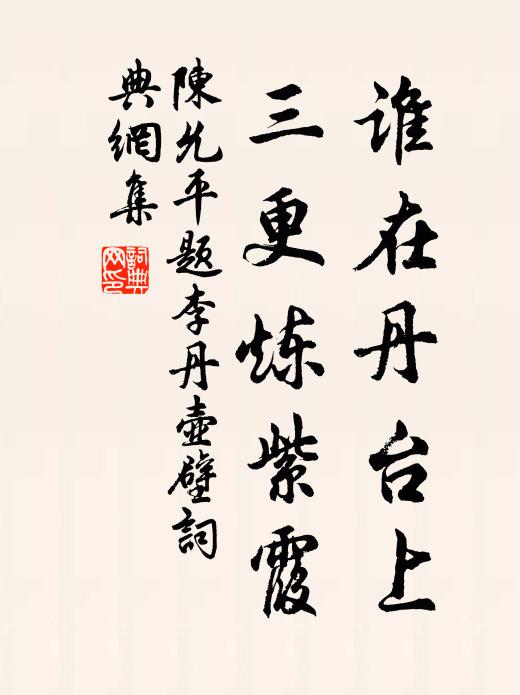 谁在丹台上
三更炼紫霞
陳允平題李丹壺壁詞
典網集
詞典
网印